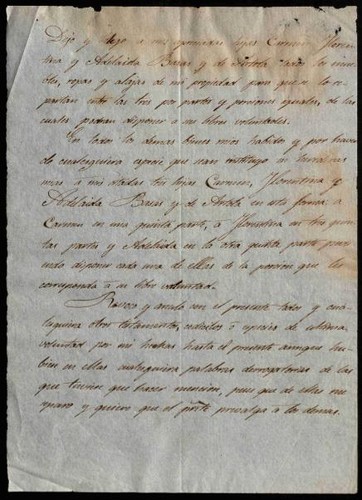 Dejo y lego a mis queridas hijas Carmen, Floren
tina y Adelaida Baras y de Antola todos los mue
bles, ropas y alajas de mi propiedad para que se lo re
partan entre las tres por partes y porciones iguales, de las
cuales podran disponer a su libre voluntades.
En todos los demas bienes mios habidos y por haver
de cualesquiera especie que sean instituyo en herederas
mias a mis dichas tres hijas Carmen, Florentina y
Adelaida Baras y de Antola en esta forma: a
Carmen en una quinta parte, a Florentina en tres quin
tas partes y Adelaida en la otra quinta parte pudi
endo disponer cada una de ellas de la porcion que les
corresponda a su libre voluntad.
Revoco y anulo con el presente todos y cua
lesquiera otros testamentos, codicilos o especies de ultima
voluntad por mi hechas hasta el presente aunque hu
biese en ellas cualesquiera palabras derrogatorias de las
que tuviera que hacer mencion, pues que de ellas me
aparto y quiero que el pnte prevalga a los demas.